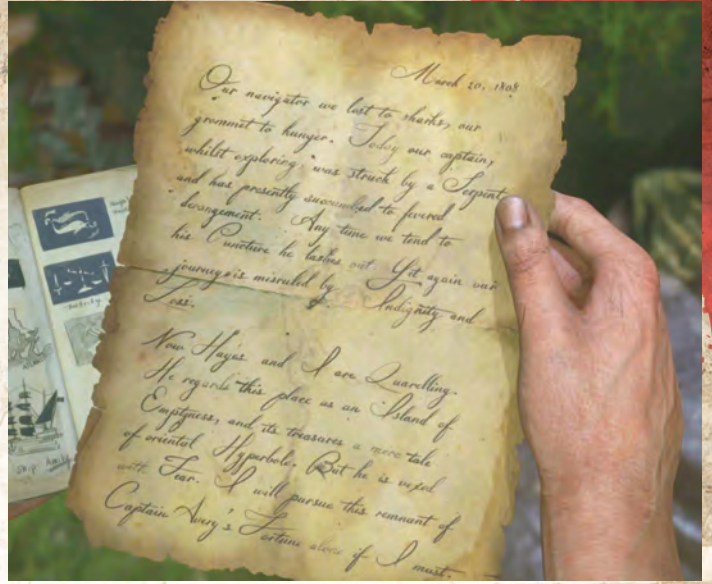 March 20, 1808
Our navigator we lost to sharks, our
grommet to hunger. Today our captain,
whilst exploring, was struck by a Serpent
and has presently succumbed to fevered
derangement. Any time we tend to
his Puncture he lashes out. Yet again our
journey is misruled by Indignity and
Loss.
Now Hayes and I are Quarelling.
He regards this place as an Island of
Emptyness, and its treasures a mere tale
of oriental Hyperbole. But he is vexed
with Fear. I will pursue this remnant of
Captain Avery's Fortune alone if I must.
ship